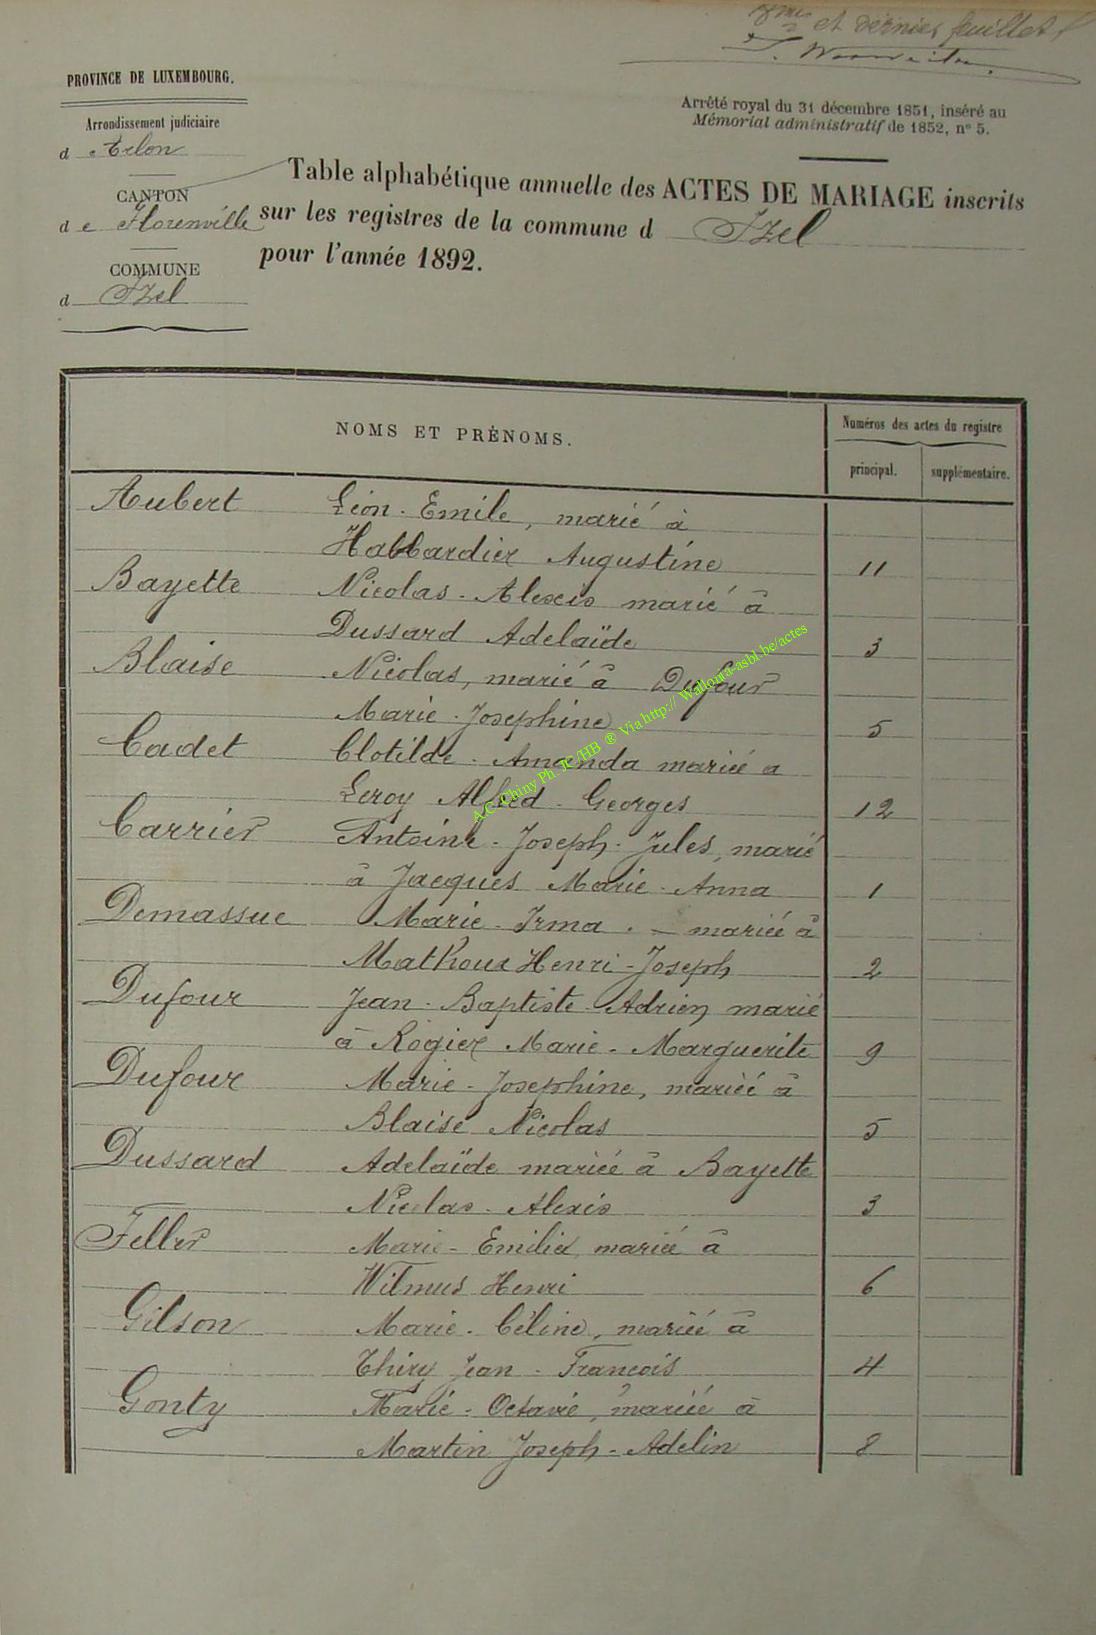 et dernier feuillet
PROVINCE DE LUXEMBOURG.
Arrêté royal du 31 décembre 1851, inséré au
Mémorial administratif de 1852, n° 5.
Arrondissement judiciaire
d Arlon
CANTON
d e Florenville
COMMUNE
d Izel
Table alphabétique annuelle des ACTES DE MARIAGE inscrits
sur les registres de la commune d Izel
pour l'année 1892.
NOMS ET PRÉNOMS.
Numéros des actes du registre
principal. supplémentaire.
Aubert Léon-Emile, marié à
Habbardier Augustine 11
Bayette Nicolas-Alexis marié à
Dussard Adelaïde 3
Blaise Nicolas, marié à Dufour
Marie-Josephine 5
Cadet Clotilde-Amanda mariée a
Leroy Alfred-Georges 12
Carrier Antoine-Joseph-Jules, marié
à Jacques Marie-Anna 1
Demassue Marie-Irma. — mariée à
Mathoux Henri-Joseph 2
Dufour Jean-Baptiste-Adrien marié
à Rogier Marie-Marguerite 9
Dufour Marie-Josephine, mariée à
Blaise Nicolas 5
Dussard Adelaïde mariée à Bayette
Nicolas-Alexis 3
Feller Marie-Emilie, mariée à
Wilmus Henri 6
Gilson Marie-Céline, mariée à
Thiry Jean-François 4
Gonty Marie-Octavie, mariée à
Martin Joseph-Adelin 8
A.C. Chiny Ph. JC/HB ® Via http:// Wallonia-asbl.be/actes